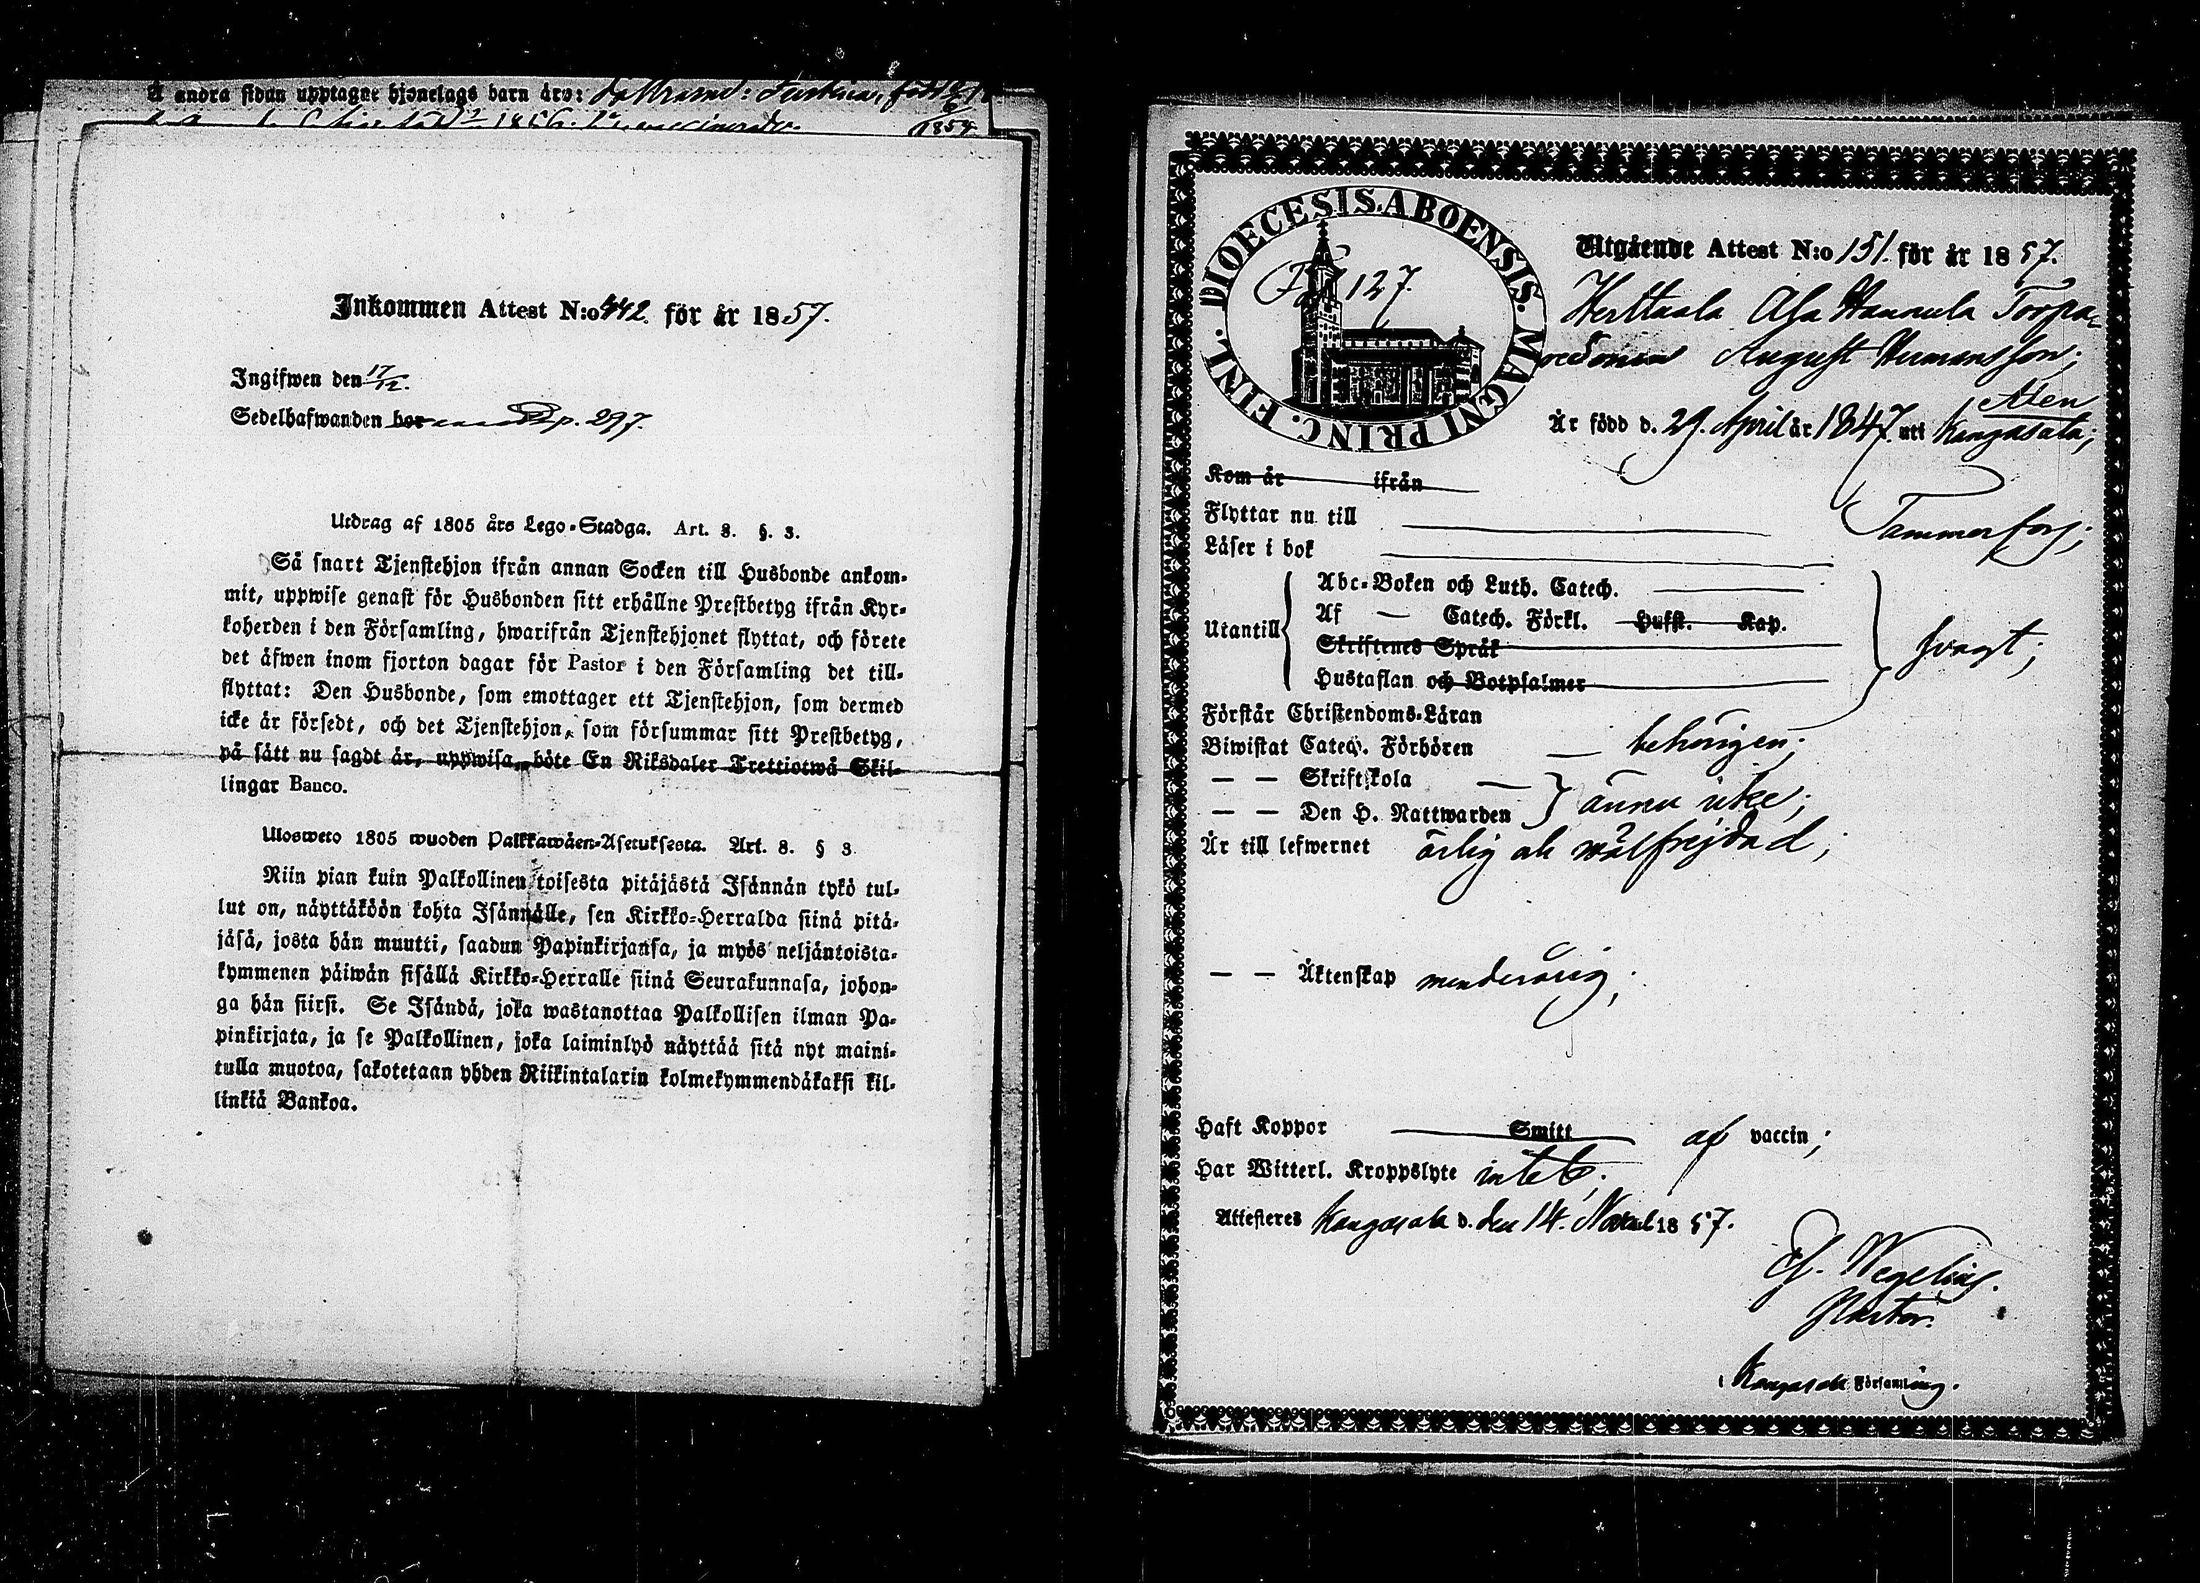 Å andra sidan upptagne hjonelags barn äro:
1854
Inkommen Attest N:o 442. för år 1857.
Ingifwen den 17/12.
Sedelhafwanden bor p. 297.
Utdrag af 1805 års Lego-Stadga. Art. 8. §. 3.
Så snart Tjenstehjon ifrån annan Socken till Husbonde ankom-
mit, uppwise genast för Husbonden sitt erhållne Prestbetyg ifrån Kyr-
koherden i den Församling, hwarifrån Tjenstehjonet flyttat, och förete
det äfwen inom fjorton dagar för Pastor i den Församling det till-
flyttat: Den Husbonde, som emottager ett Tjenstehjon, som dermed
icke är försedt, och det Tjenstehjon, som försummar sitt Prestbetyg,
på sätt nu sagdt är, uppwisa, böte En Riksdaler Trettiotwå Skil-
lingar Banco.
Ulosweto 1805 wuoden Palkkawäen-Asetuksesta. Art. 8. § 3
Niin pian kuin Palkollinen toisesta pitäjästä Isännän tykö tul-
lut on, näyttäköön kohta Isännälle, sen Kirkko-Herralda siinä pitä-
jäsä, josta hän muutti, saadun Papinkirjansa, ja myös neljäntoista-
kymmenen päiwän sisällä Kirkko-Herralle siinä Seurakunnasa, johon-
ga hän siirsi. Se Isändä, joka wastanottaa Palkollisen ilman Pa-
pinkirjata, ja se Palkollinen, joka laiminlyö näyttää sitä nyt maini-
tulla muotoa, sakotetaan yhden Riikintalarin kolmekymmendäkaksi kil-
linkiä Bankoa.
DIOECESIS. ABOENSIS. MAGNI PRINC. FINL.
127.
Utgående Attest N:o 151. för år 1857.
Herttaala Ala Hannula Torpa-
resonen August Hermansson;
Är född d. 29. April år 1847. uti Kangasala;
Kom år ifrån
Flyttar nu till Tammerfors;
Läser i bok
Utantill
Abc-Boken och Luth. Catech.
Af — Catech. Förkl. Hufst. Kap.
Skriftenes Språk
Hustaflan och Botpsalmer
svagt;
Förstår Christendoms-Läran
Biwistat Catech. Förhören — behörigen;
— — Skriftskola —
— — Den H. Nattwarden
ännu icke;
Är till lefwernet ärlig och wälfrejdad;
— — Äktenskap minderårig;
Haft Koppor Smitt af vaccin;
Har Witterl. Kroppslyte intet;
Attesteres Kangasala d. den 14. 1857.
Wegelius.
Pastor.
i Kangasala Församling.